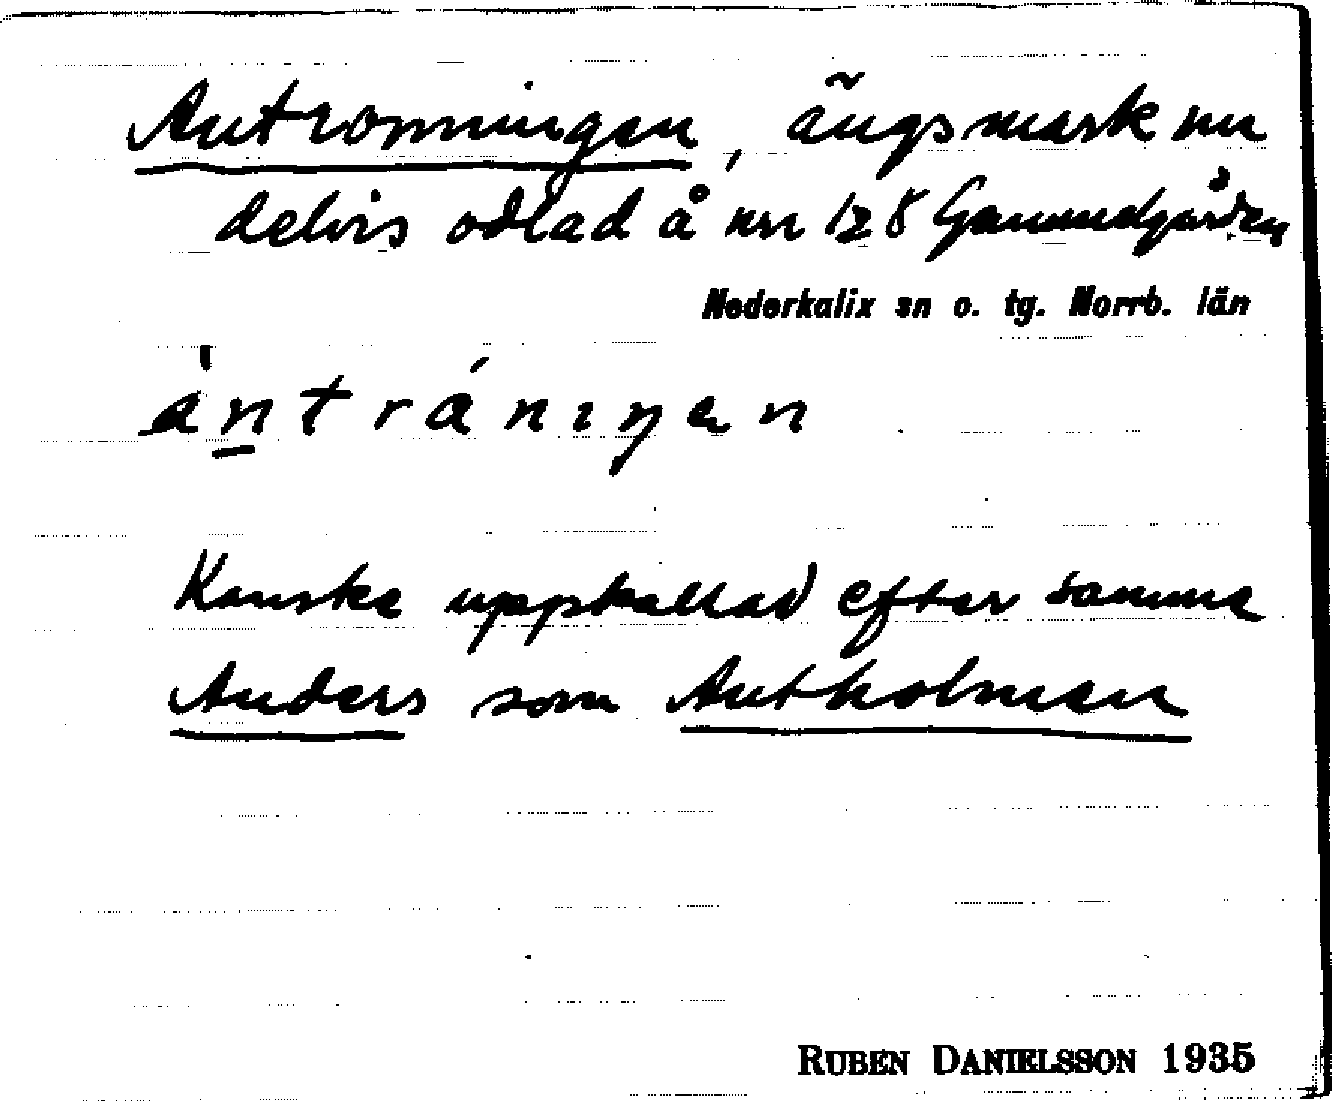 Antronningen, ängsmark nu
delvis odlad å nr 128 Gammelgården
Nederkalix sn o. tg. Norrb. län
àntrániŋen
Kanske uppkallad efter samma
Anders som Antholmen
RUBEN DANIELSSON 1935